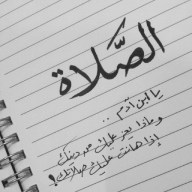 الصَّلاة
يا ابن آدم ..
وماذا يعز عليك من دينك
إذا هانت عليك صلاتك !